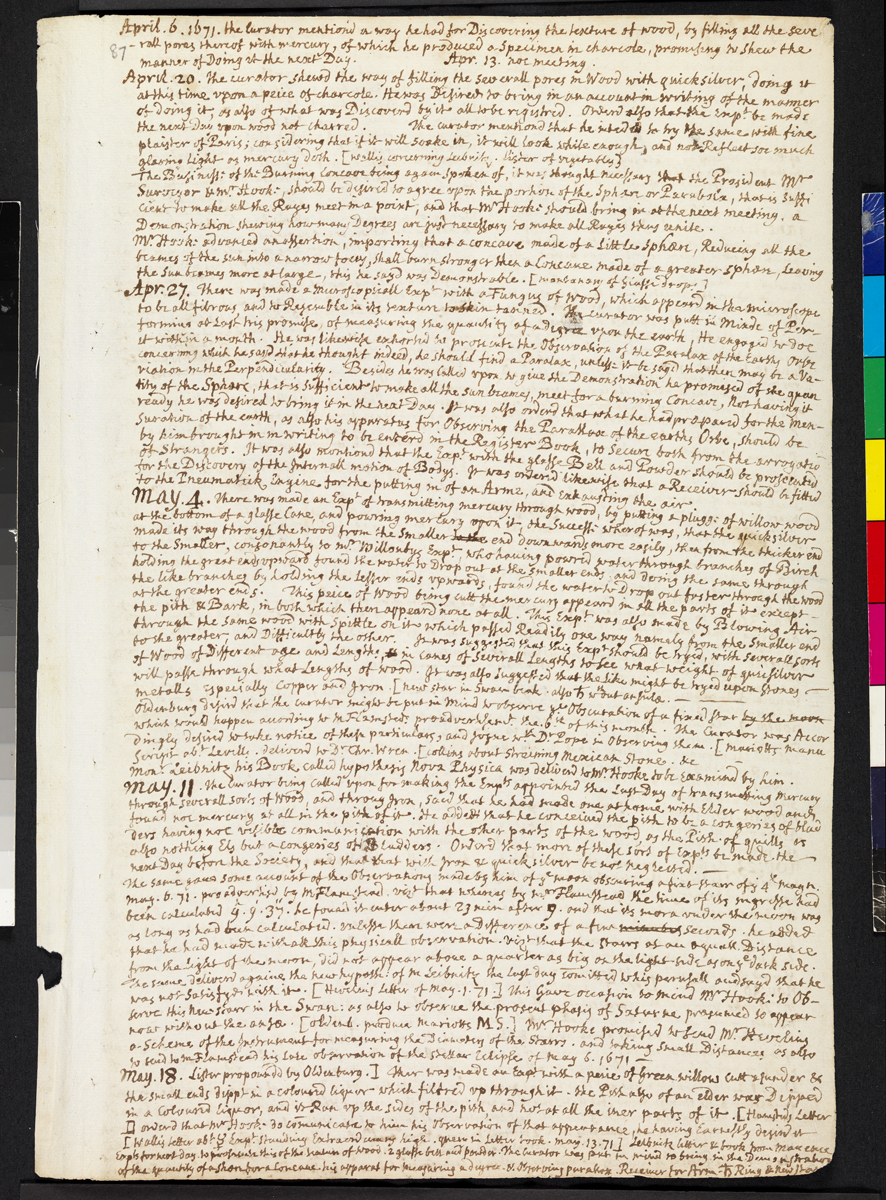 April. 6. 1671. the Curator mention'd a way he had for Discovering the texture of wood, by filling all the seve
87 - rall pores thereof with mercury, of which he produced a Specimen in charcole, promising to shew the
manner of Doing it the next Day. Apr. 13. noe meeting.
April. 20. The curator shewd the way of filling the severall pores in Wood with quicksilver, doing it
at this time upon a peice of charcole. He was Desired to bring in an account in writing of the manner
of doing it, as also of what was Discoverd by it all to be registred. Orderd also that the Expt. be made
the next Day upon wood not charred. The curator mentiond that he intended to try the same with fine
plaister of Paris; considering that if it will soake in, it will look white enough, and not Reflect soe much
glaring light as mercury doth. [Wallis concerning Leibnitz. Lister of vegetabls]
The Business of the Burning Concave being again spoken of, it was thought necessary that the President Mr
Surveyor & Mr. Hook: should be desired to agree upon the portion of the Sphære or Parabola, that is suffi
cient to make all the Rayes meet in a point, and that Mr Hook: should bring in at the next meeting. a
Demonstration shewing how many Degrees are just necessary to make all Rayes thus unite.
Mr. Hook: advanced an assertion, importing that a concave made of a Little Sphære, Reducing all the
beames of the sun into a narrow focus, shall burn stronger then a Concave made of a greater Sphær, leaving
the Sun beames more at large, this he sayd was Demonstrable. [montanari of Glasse drops]
Apr. 27. There was made a microscopicall Expt. with a fungus of Wood, which appeard in the microscope
to be all fibrous and to Resemble in its texture to skin tanned. The Curator was putt in Minde of Per-
forming at Last his promise, of measuring the quantity of a degree upon the earth, He engaged to doe
it within a month. He was likewise exhorted to prosecute the Observation of the Paralax of the Earths Orbe
concerning which he said that he thought indeed, he should find a Paralax, unlesse it be sayd that there may be a Va-
riation in the Perpendicularity. Besides he was called upon to give the Demonstration he promised of the quan
tity of the Sphære, that is sufficient to make all the sun beames, meet for a burning Concave, Not having it
ready he was desired to bring it in the next Day. It was also orderd that what he had prepared for the Men-
suration of the earth, as also his apparatus for Observing the Parallax of the earths Orbe, should be
by him brought in in writing to be enterd in the Register Book, to Secure both from the arrogatio
of Strangers. It was also mentiond that the Expt. with the glasse Bell and Powder should be prosecuted
for the Discovery of the Internall motion of Bodys. It was ordered likewise that a Receiver should be fitted
to the Pneumatick Engine for the putting in of an Arme, and exhausting the air.
May. 4. There was made an Expt. of transmitting mercury through wood, by putting a plugge of willow wood
at the bottom of a glasse Cane, and powring mercury upon it, the Success wherof was, that the quicksilver
made its way through the wood from the Smaller end downwards more easily, then from the thicker end
to the Smaller, consonantly to Mr. Willoubys Expt., who having powred water through branches of Birch
holding the great ends upward found the water to Drop out at the smaller ends. and doing the same through
the like branches by holding the lesser ends upwards, found the water to Drop out faster through the wood
at the greater ends. This peice of Wood being cutt the mercury appeard in all the parts of it except
the pith & Bark, in both which there appeard none at all. This Expt. was also made by Blowing Air
through the same wood with Spittle on it, which passed Readily one way namely from the Smaller end
to the greater, and Difficultly the other. It was suggested that this Expt. should be tryed, with severall sorts
of Wood of Different age and Lengths, in canes of Severall Lengths to see what weight of quicksilver
will passe through what Lengths of wood. It was also suggested that the like might be tryed upon Stones
metalls Especially Copper and Iron. [new star in Swans beak. also ♄ without ansulæ.
Oldenburg desird that the curator might be put in Mind to observe ye Obscuration of a fixed Star by the moon
which would happen according to Mr Flamsteeds preadvertisemt. the 6th of this month. The Curator was Accor
dingly desired to take notice of these particulars, and joyne wth. Dr. Pope in Observing them. [Mariotts manu
script abt. Levells. deliverd to Dr. Chr. Wren. [collins about streining Mexican Stone. &c
Mon. Leibnitz his Book, called hypothesis Nova Physica was deliverd to Mr. Hooke to be Examind by him.
May. 11. The Curator being called upon for making the Expts. appointed the Last Day of transmitting Mercury
through severall sorts of Wood, and throug Iron, said that he had made one at home with Elder wood and
found noe mercury at all in the pith of it. He added that he conceived the pith to be a congeries of Blad
ders having noe visible communication with the other parts of the wood, as the Pith of quills is
also nothing Els but a congeries of Bladders. Orderd that more of these sorts of Expts be made the
next Day before the Society, and that that with Iron & quicksilver be not neglected.
The same gave some account of the Observations made by him of ye moon obscuring a fixt starr of ye 4th. magn.
may. 6. 71. preadvertised by Mr Flamstead. vizt. that whereas by Mr Flamstead the time of its ingresse had
been calculated 9. 37. he found it enter about 23 min after 9. and that its mora under the moon was
as long as had been calculated. unlesse there were a difference of a few seconds. he added
that he had made withall this physicall observation. vizt. that the starrs at an equall Distance
from the light of the moon, did not appear above a quarter as big on the light side as on ye dark side.
The same deliverd againe the new hypoth: of Mr Leibnitz the last day comitted to his perusall and sayd that he
was not satisfyd with it. [Hevelius letter of may. 1. 71.] This Gave occasion to mind Mr. Hook: to Ob-
serve this New starr in the Swan: as also to observe the present phasis of Saturne presumed to appear
now without the ansæ. [oldenb. produce Mariotts M.S.] Mr. Hooke promised to send Mr. Hevelius
a Scheme of the Instrument for measuring the Diameters of the Starrs. and taking small Distances as also
to send to Mr Flamstead his late observation of the stellar Eclipse of May 6. 1671
May. 18. Lister propounded by Oldenburg.] Ther was made an Expt with a peice of Green willow cutt asunder &
the small ends dippt in a coloured liquor which filtred up through it. the Pith also of an elder was Dipped
in a coloured liquor, and it Ran up the sides of the pith and not at all the iner parts of it. [Flamsteds Letter
orderd that Mr. Hook: do comunicate to him his Observation of that appearance, he having Earnestly desird it
[Wallis letter abt. ye Expt. of standing Extraordinary high. enterd in Letter book. may. 13. 71] Leibnitz letter & book from Mayence
Expts for next day. to prosecute this of the texture of Wood. 2 glasse bell and powder. The Curator was put in mind to bring in the Demonstration
of the quantity of a sphær for a Concave. his apparat for measuring a degree. & observing paralax. Receiver for Arm. ♄ Ring & new Star